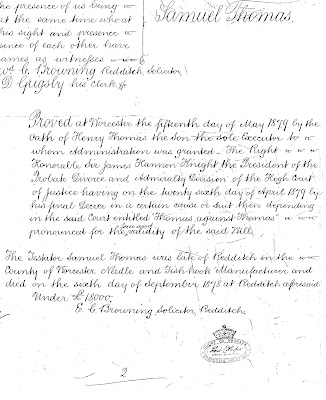 the presence of us being
at the same time who at
his sight and presence
sence of each other have
ames as witnesses
C. Browning Redditch, Solicitor
D Grigsby his clerk
Samuel Thomas.
Proved at Worcester the fifteenth day of May 1879 by the
oath of Henry Thomas the son the sole Executor to
whom Administration was granted – The Right
Honorable Sir James Hannen Knight the President of the
Probate Divorce and Admiralty Division of the High Court
of Justice having on the twenty sixth day of April 1879 by
his final Decree in a certain cause or suit then depending
in the said Court entitled "Thomas against Thomas"
pronounced for the force and validity of the said Will
The Testator Samuel Thomas was late of Redditch in the
County of Worcester Needle and Fish-hook Manufacturer and
died on the sixth day of September 1878 at Redditch aforesaid
Under £18000.
E. C. Browning Solicitor, Redditch.
2